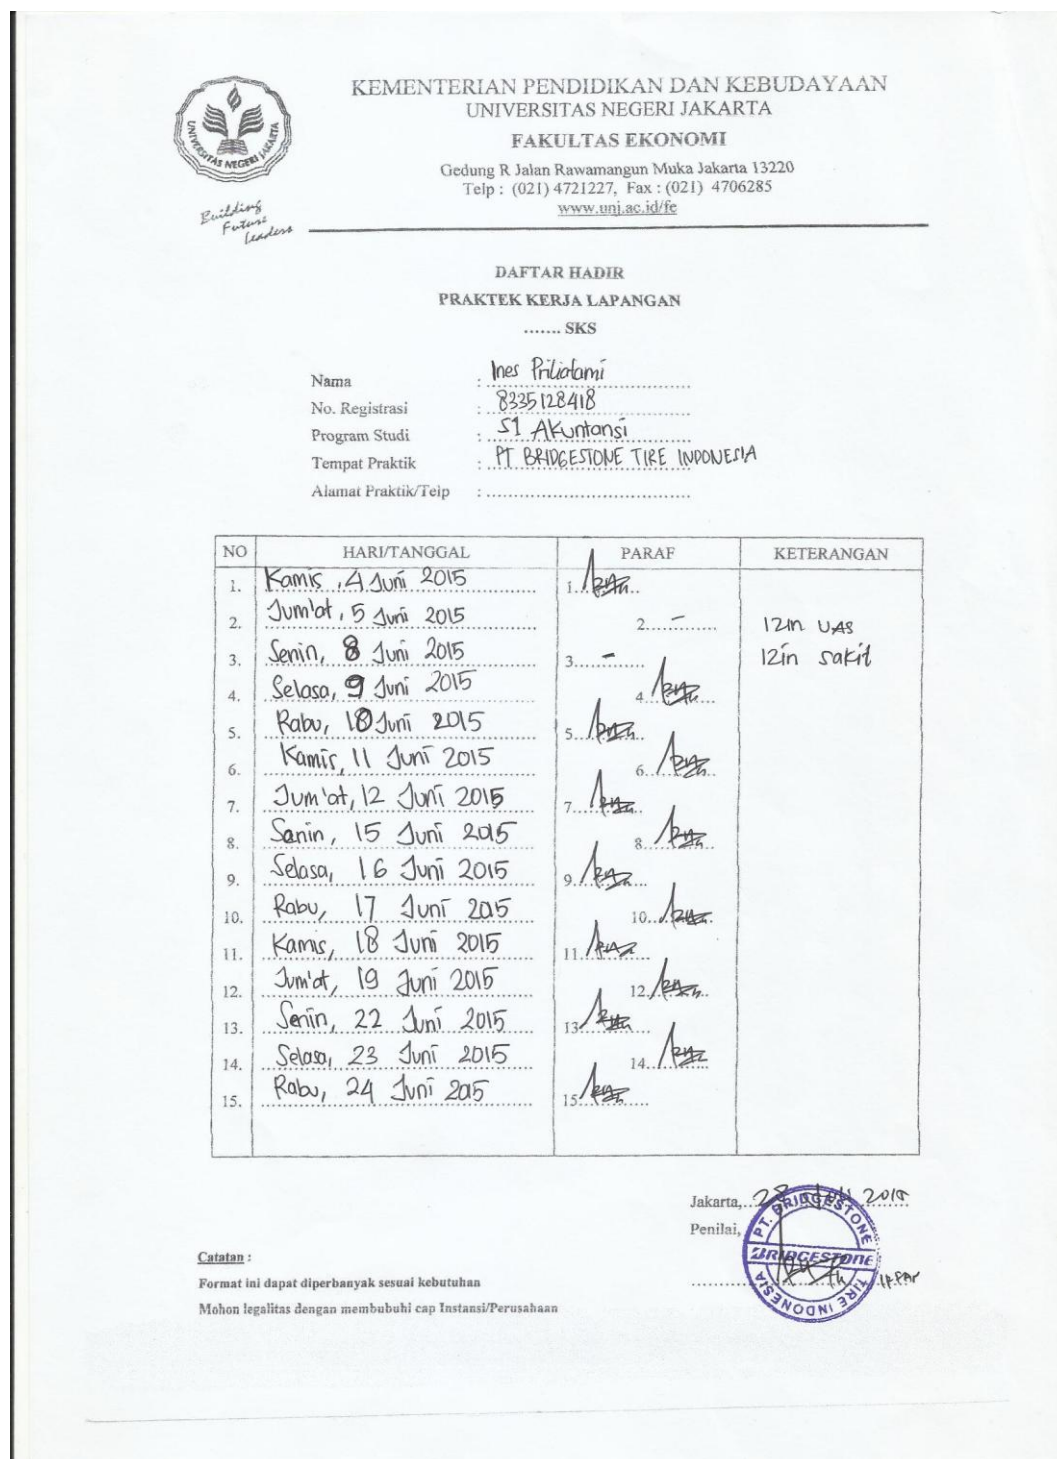 KEMENTERIAN PENDIDIKAN DAN KEBUDAYAAN
UNIVERSITAS NEGERI JAKARTA
FAKULTAS EKONOMI
Gedung R Jalan Rawamangun Muka Jakarta 13220
Telp : (021) 4721227, Fax : (021) 4706285
www.unj.ac.id/fe
UNIVERSITAS NEGERI JAKARTA
Building
Future
Leaders
DAFTAR HADIR
PRAKTEK KERJA LAPANGAN
....... SKS
Nama : Ines Priliatami
No. Registrasi : 8335128418
Program Studi : S1 Akuntansi
Tempat Praktik : PT BRIDGESTONE TIRE INDONESIA
Alamat Praktik/Telp : ..................................
NO HARI/TANGGAL PARAF KETERANGAN
1. Kamis, 4 Juni 2015 1.
2. Jum'at, 5 Juni 2015 2. - Izin UAS
3. Senin, 8 Juni 2015 3. - Izin sakit
4. Selasa, 9 Juni 2015 4.
5. Rabu, 10 Juni 2015 5.
6. Kamis, 11 Juni 2015 6.
7. Jum'at, 12 Juni 2015 7.
8. Senin, 15 Juni 2015 8.
9. Selasa, 16 Juni 2015 9.
10. Rabu, 17 Juni 2015 10.
11. Kamis, 18 Juni 2015 11.
12. Jum'at, 19 Juni 2015 12.
13. Senin, 22 Juni 2015 13
14. Selasa, 23 Juni 2015 14.
15. Rabu, 24 Juni 2015 15
Jakarta, 28 2015
Penilai,
PT. BRIDGESTONE
BRIDGESTONE
TIRE INDONESIA
Catatan :
Format ini dapat diperbanyak sesuai kebutuhan
Mohon legalitas dengan membubuhi cap Instansi/Perusahaan